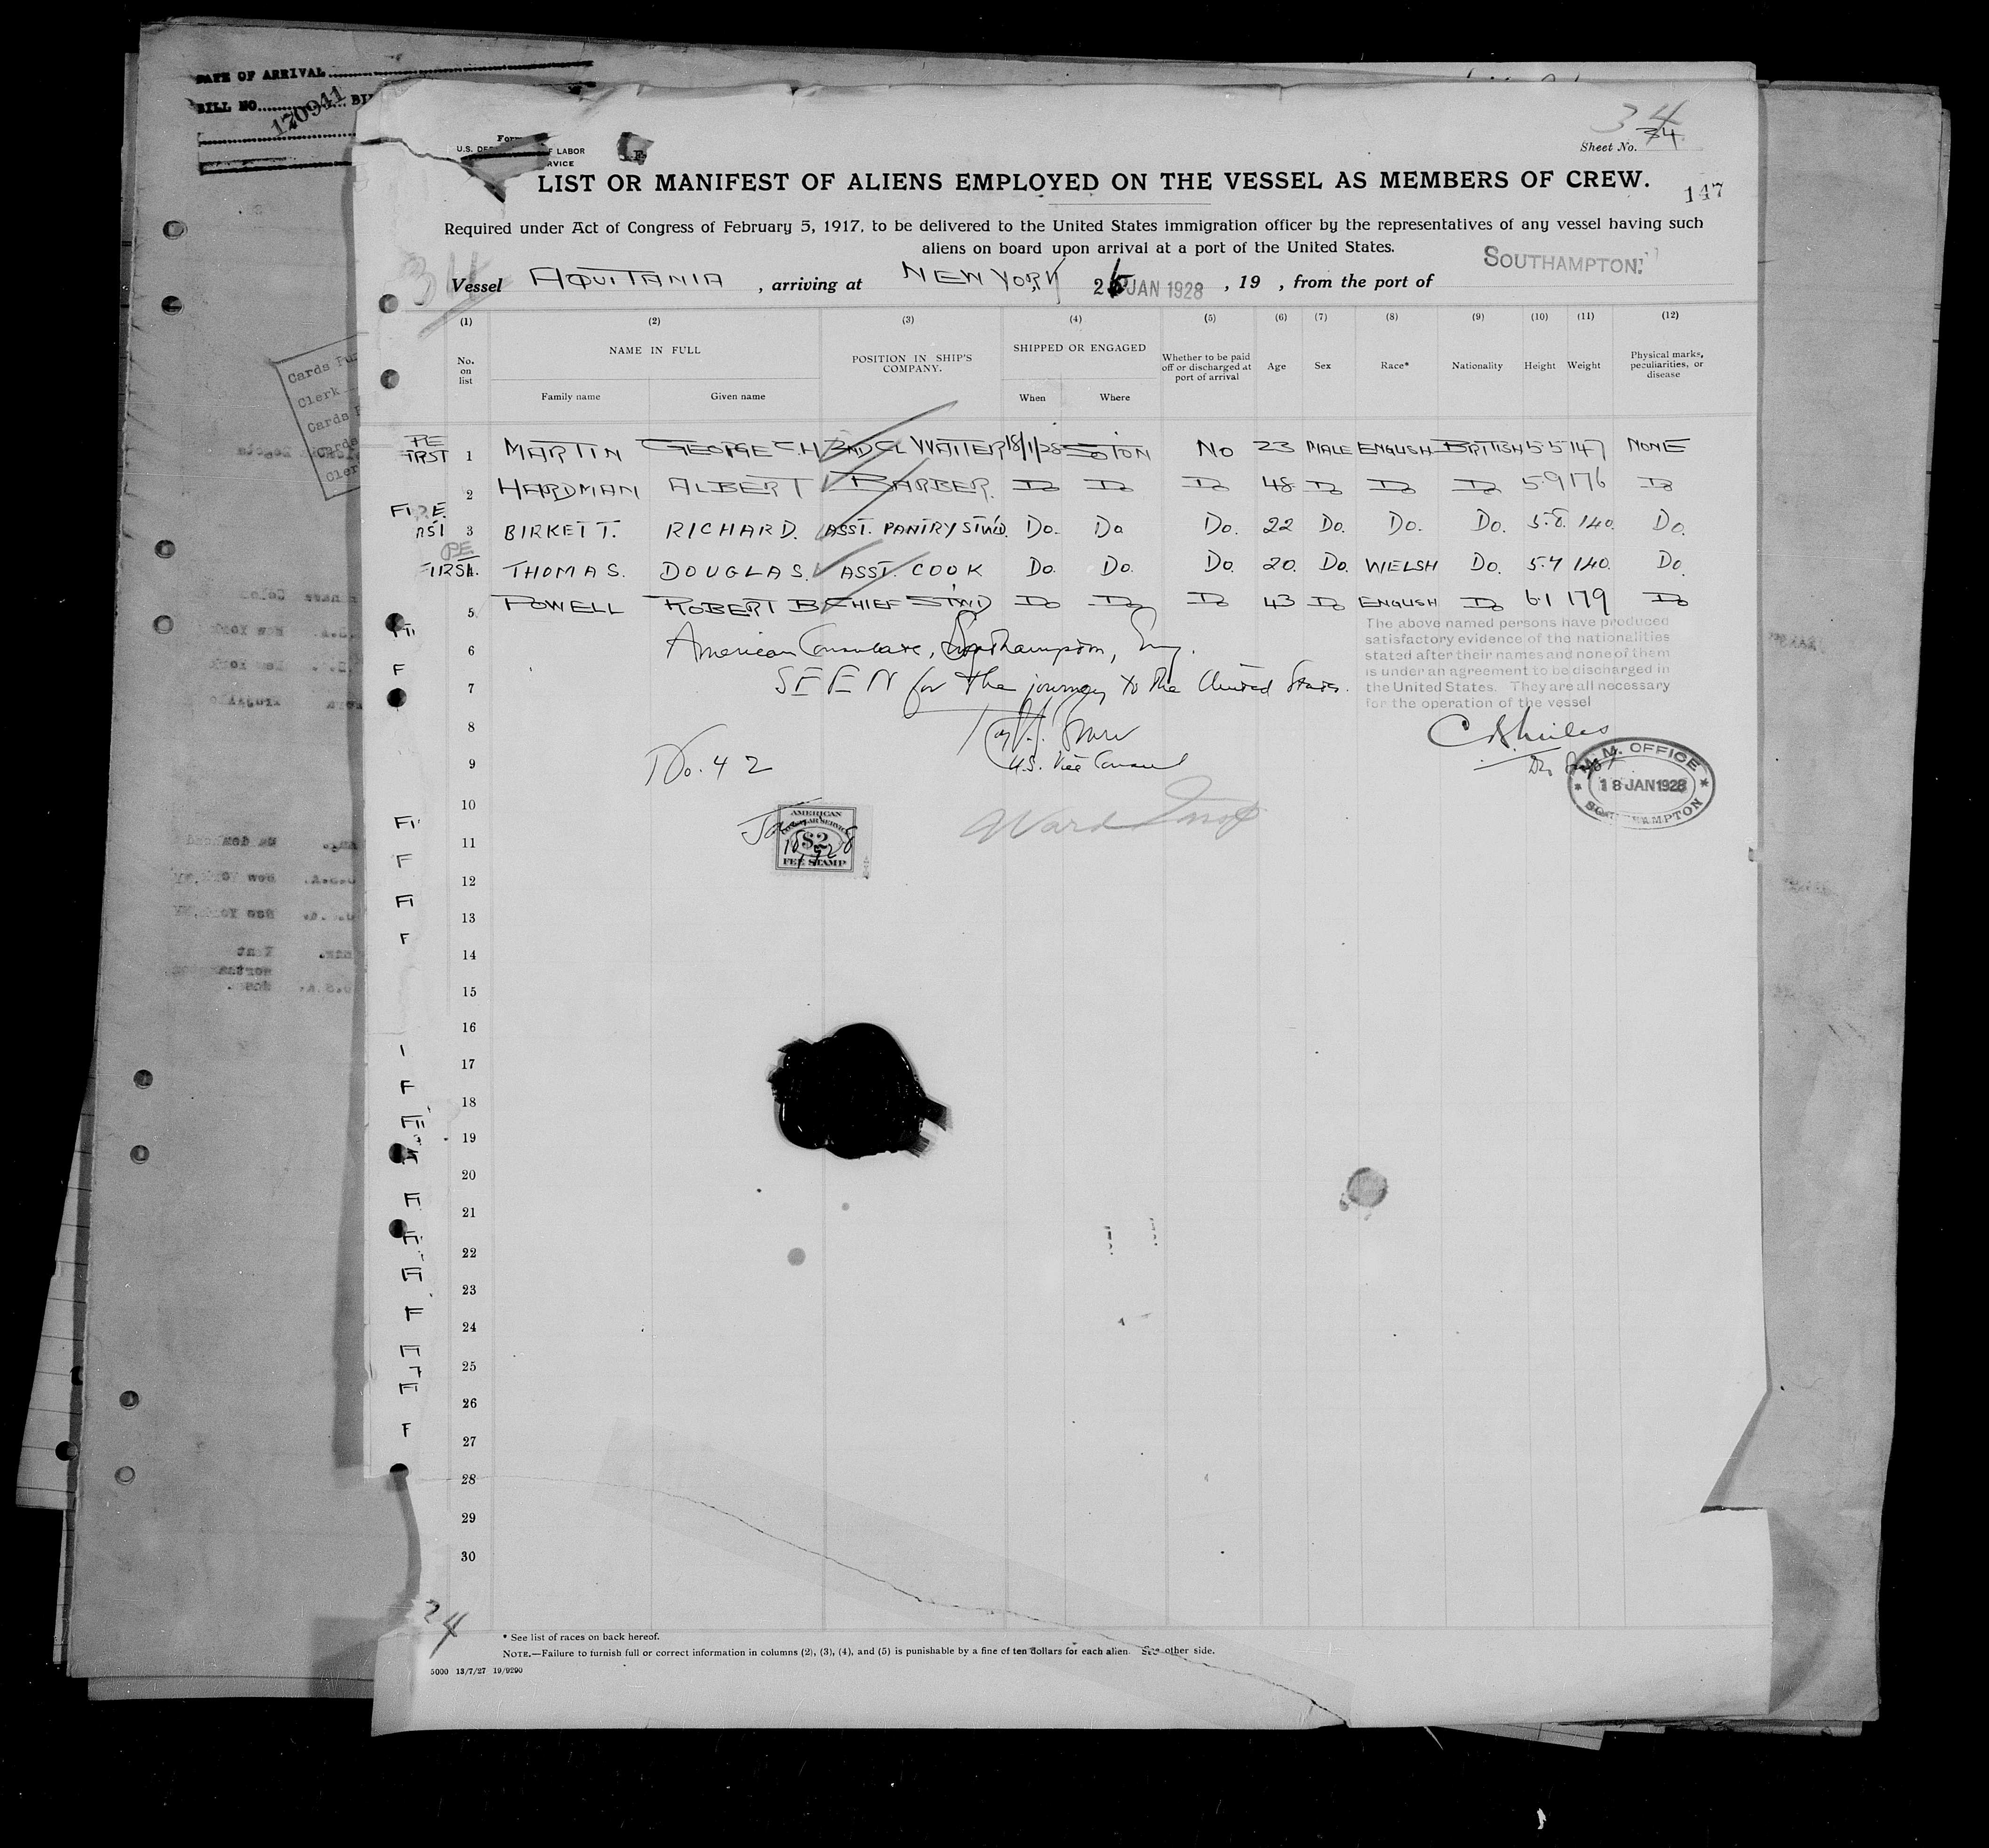 DATE OF ARRIVAL
BILL NO. 170941
Cards
Clerk
Cards
34
Sheet No. 34
U.S. DE F LABOR
RVICE
LIST OR MANIFEST OF ALIENS EMPLOYED ON THE VESSEL AS MEMBERS OF CREW.
147
Required under Act of Congress of February 5, 1917, to be delivered to the United States immigration officer by the representatives of any vessel having such
aliens on board upon arrival at a port of the United States.
Vessel AQUITANIA, arriving at NEW YORK 26 JAN 1928, 19 , from the port of SOUTHAMPTON.
(1) (2) (3) (4) (5) (6) (7) (8) (9) (10) (11) (12)
No. on list NAME IN FULL POSITION IN SHIP'S COMPANY. SHIPPED OR ENGAGED Whether to be paid off or discharged at port of arrival Age Sex Race* Nationality Height Weight Physical marks, peculiarities, or disease
Family name Given name When Where
FIRST 1 MARTIN GEORGE C.H 2ND CL WAITER 18/1/28 SOTON NO 23 MALE ENGLISH BRITISH 5.5 147 NONE
2 HARDMAN ALBERT BARBER. DO DO DO 48 DO DO DO 5.9 176 DO
3 BIRKETT. RICHARD. ASST. PANTRY STWD. DO. DO DO. 22 DO. DO. DO. 5.8. 140. DO.
THOMAS. DOUGLAS. ASST. COOK DO. DO. DO. 20. DO. WELSH DO. 5.7 140. DO.
5. POWELL ROBERT B CHIEF STWD DO DO DO 43 DO ENGLISH DO 6.1 179 DO
The above named persons have produced
satisfactory evidence of the nationalities
stated after their names and none of them
is under an agreement to be discharged in
the United States. They are all necessary
for the operation of the vessel
6 American Consulate, Southampton, Eng.
7 SEEN for the journey to the United States.
8
9 No. 42 U.S. Vice Consul
M.M. OFFICE
18 JAN 1928
SOUTHAMPTON
10
AMERICAN
CONSULAR SERVICE
$2
FEE STAMP
Jan 18 1928
11
12
13
14
15
16
17
18
19
20
21
22
23
24
25
26
27
28
29
30
24
* See list of races on back hereof.
NOTE.—Failure to furnish full or correct information in columns (2), (3), (4), and (5) is punishable by a fine of ten dollars for each alien. See other side.
5000 13/7/27 19/9290